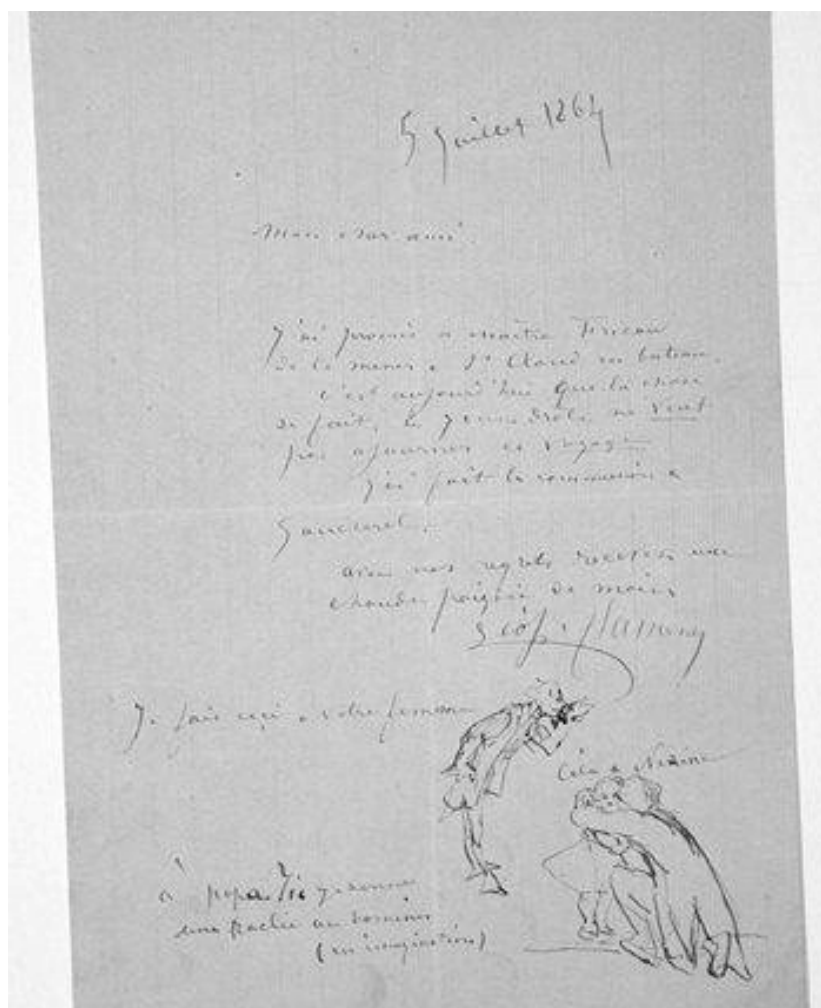 5 Juillet 1864
Mon cher ami.
J'ai promis a maître
de le mener a St Cloud en bateau.
c'est aujourd'hui que la chose
se fait, le jeune drôle ne veut
pas ajourner ce voyage
J'ai fait la commission a
avec nos regrets recevez une
chaude poignée de mains
Je fais ceci a votre femme
Cela a
à papa je donne
une
(en imagination)